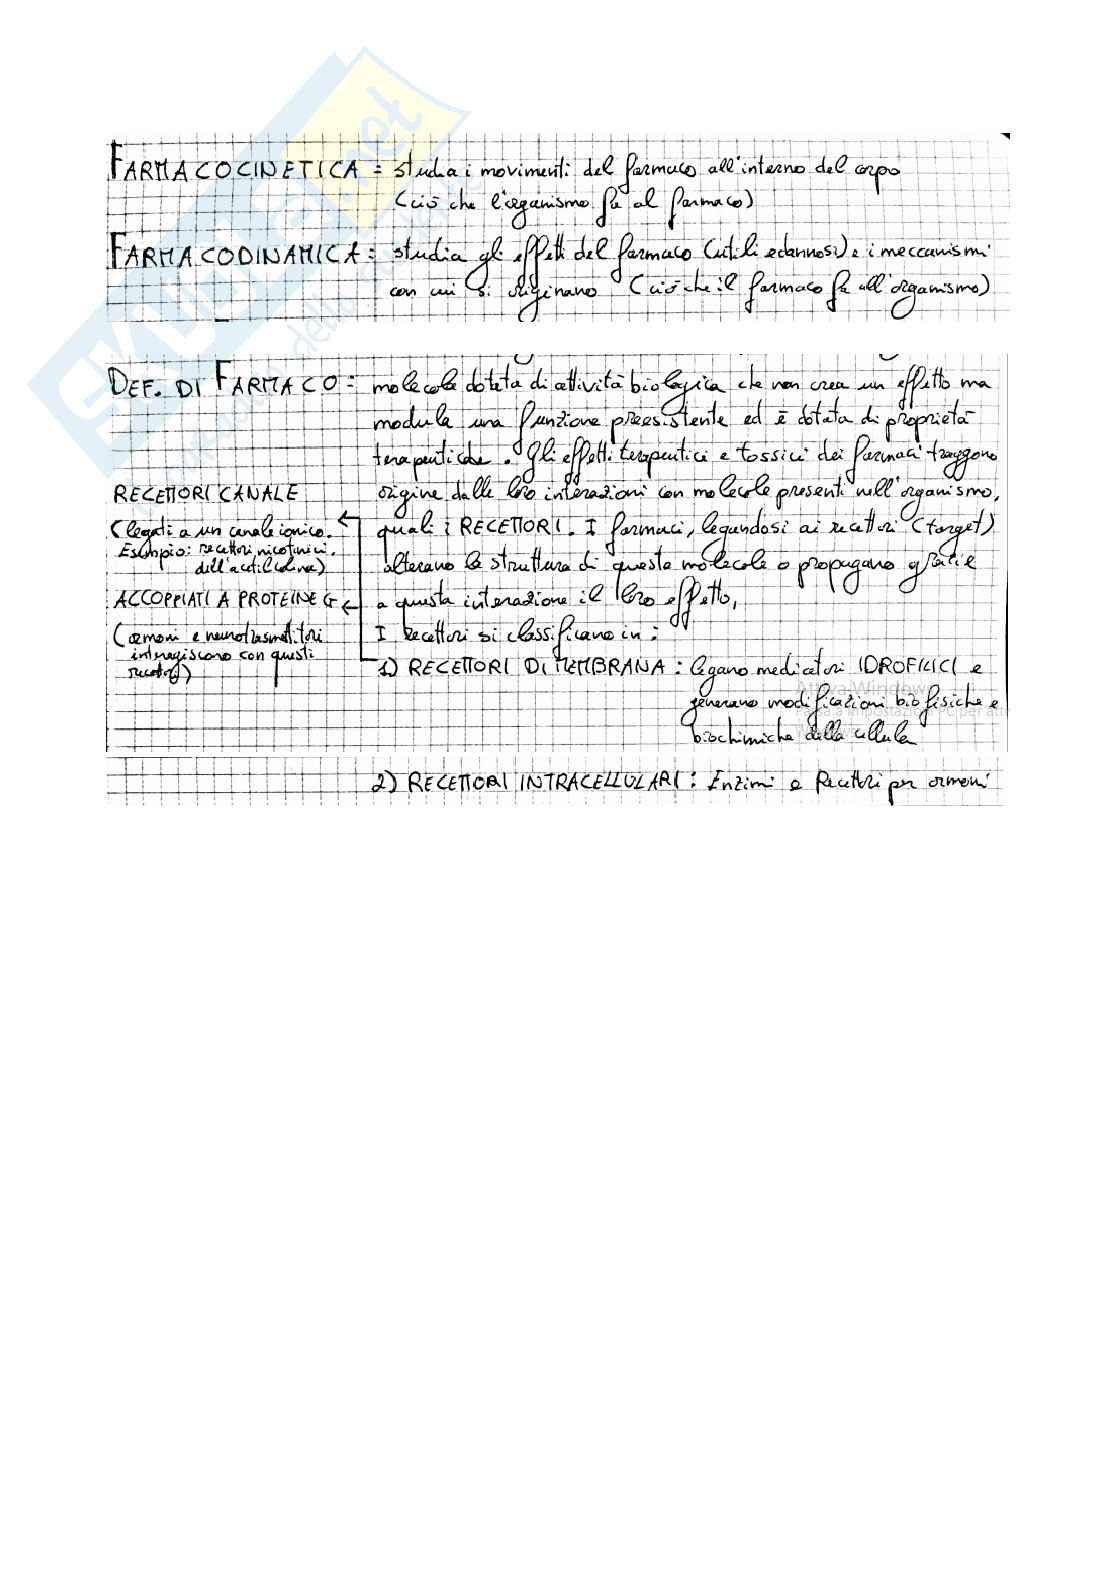 FARMACOCINETICA = studia i movimenti del farmaco all'interno del corpo
(ciò che l'organismo fa al farmaco)
FARMACODINAMICA = studia gli effetti del farmaco (utili e dannosi) e i meccanismi
con cui si originano (ciò che il farmaco fa all'organismo)
DEF. DI FARMACO = molecola dotata di attività biologica che non crea un effetto ma
modula una funzione preesistente ed è dotata di proprietà
terapeutiche. Gli effetti terapeutici e tossici dei farmaci traggono
origine dalle loro interazioni con molecole presenti nell'organismo,
quali i RECETTORI. I farmaci, legandosi ai recettori (target)
alterano la struttura di questa molecola e propagano grazie
a questa interazione il loro effetto,
I recettori si classificano in:
1) RECETTORI DI MEMBRANA: legano mediatori IDROFILICI e
generano modificazioni biofisiche e
biochimiche della cellula
RECETTORI CANALE
(legati a un canale ionico.
Esempio: recettori nicotinici
dell'acetilcolina)
ACCOPPIATI A PROTEINE G
(ormoni e neurotrasmettitori
interagiscono con questi
recettori)
2) RECETTORI INTRACELLULARI: Enzimi e Recettori per ormoni
Attiva Windows
SKUOLA.net